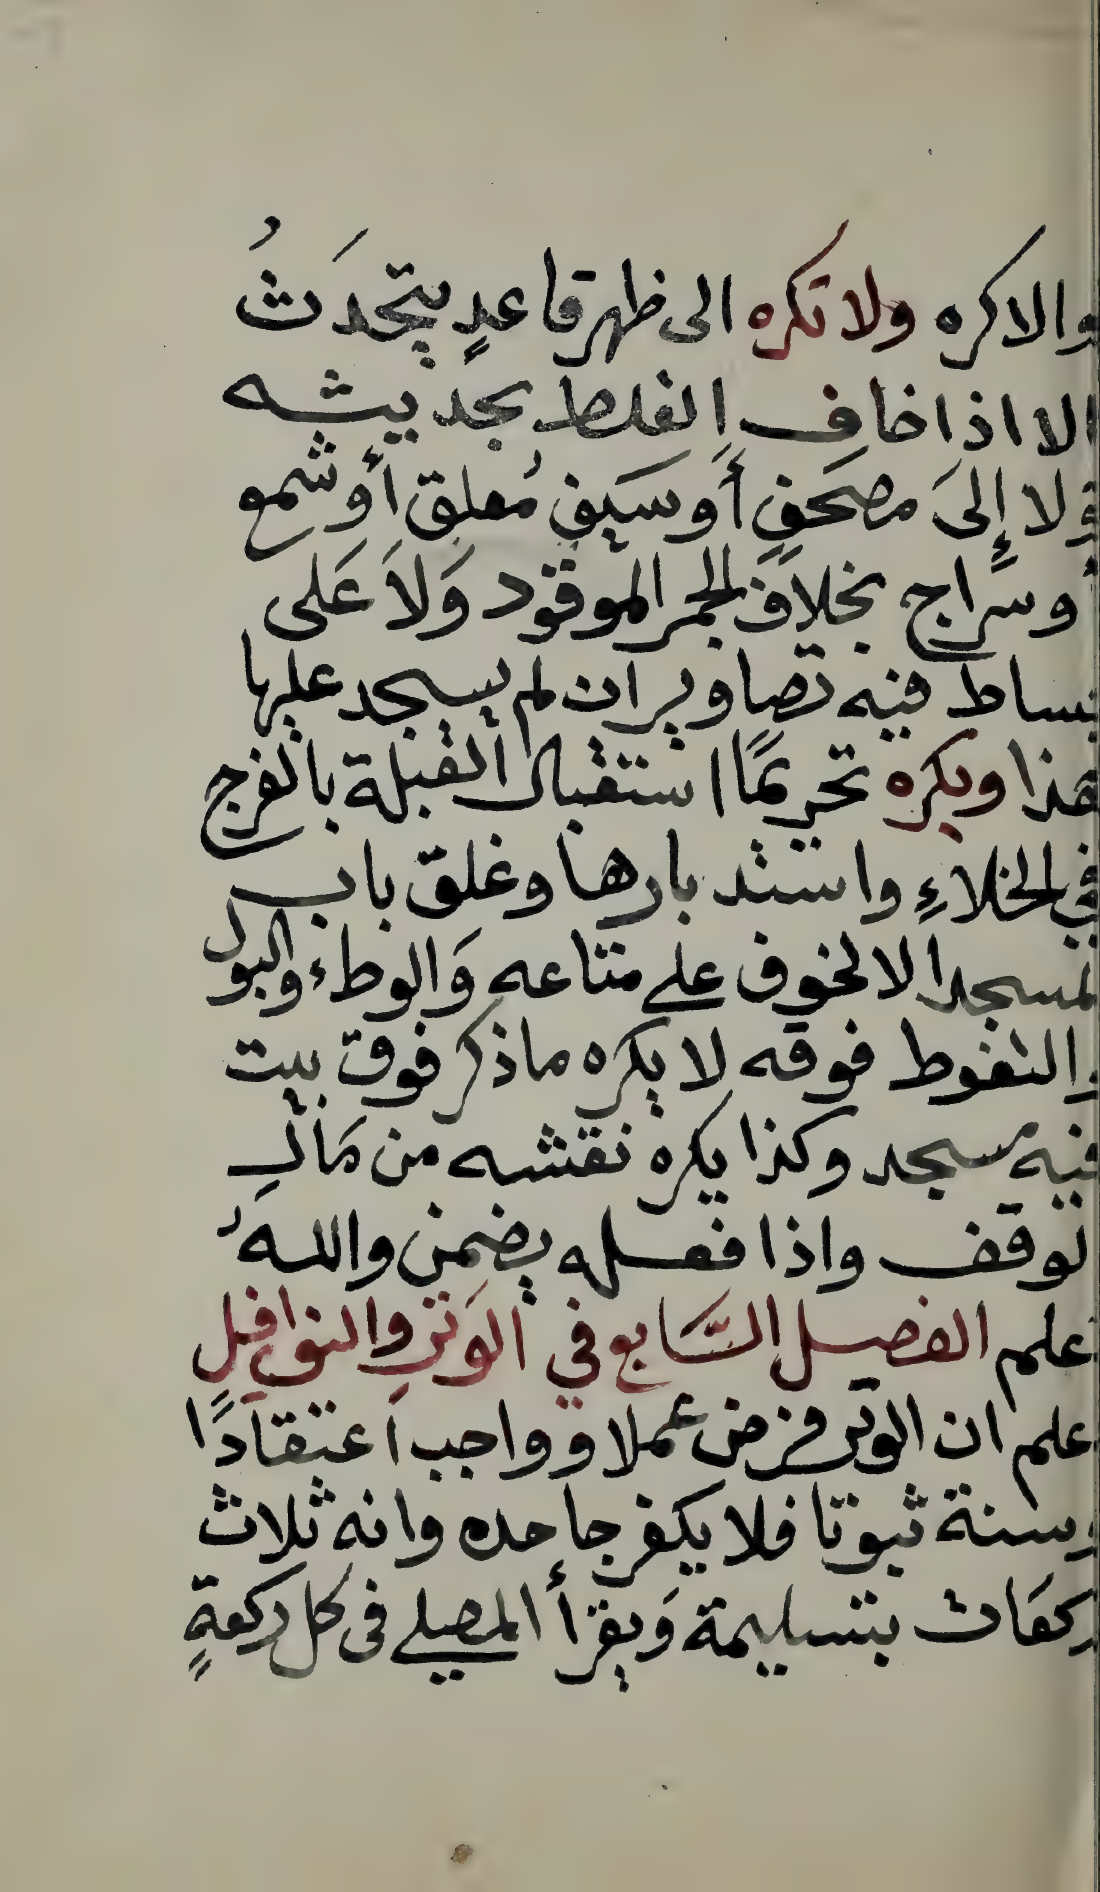 والا كره ولا تكره الى ظهر قاعدٍ يتحدَثُ
الا اذا خاف الغلط بحديثه
ولا إلىَ مصحَفٍ أَو سَيفٍ مُعلق أو شمع
وسرَاج بخلافَ الجمر الموقود وَلاَ عَلى
بساط فيه تصاوير ان لم يسجد عليها
هذا ويكره تحريمًا استقبال القبلة بالفرج
في الخلاءِ واستدبارها وغلق باب
لمسجد الا لخوف على متاعه وَالوطاء والبول
والتغوط فوقه لا يكره ما ذكر فوق بيت
فيه مسجد وكذا يكره نقشه من مَالِ
لوقف واذا فعله يضمن واللهُ
علم الفصل السَّابع في الوَترِ والنوافِل
علم ان الوتر فرض عملا وواجب اعتقادًا
وسنة ثبوتا فلا يكفر جاحده وانه ثلاث
ركعَات بتسليمة وَيقرأ المصلي في كل ركعةٍ